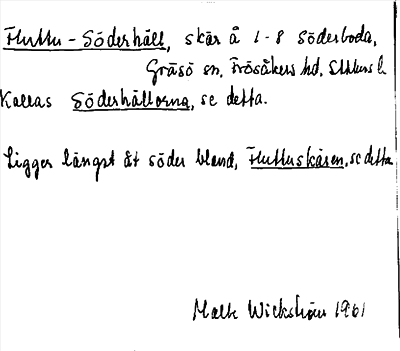 Fluttu-Söderhäll, skär å 1-8 Söderboda,
Gräsö sn, Frösåkers hd, Sthlms l.
Kallas Söderhällorna, se detta.
Ligger längst åt söder bland, Fluttuskären, se detta.
Malte Wickström 1961